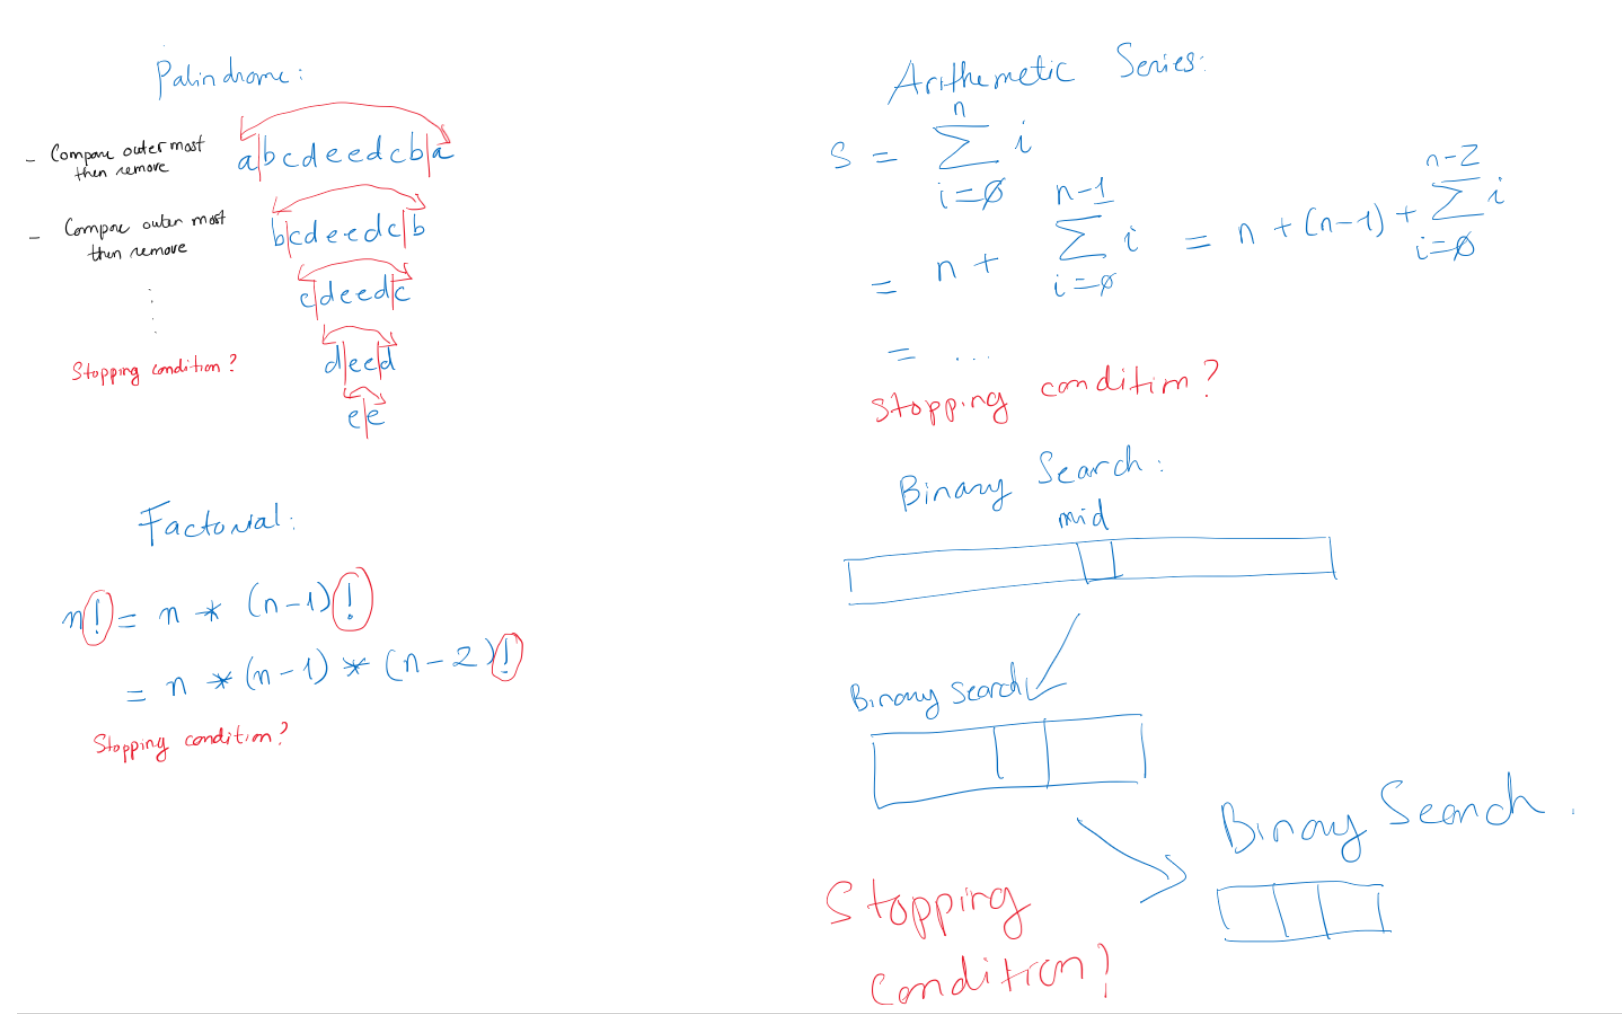 Palindrome:
- Compare outer most
then remove
a|bcdeedcb|a
- Compare outer most
then remove
b|cdeedc|b
c|deed|c
Stopping condition?
d|ee|d
e|e
Factorial:
n! = n * (n-1)!
= n * (n-1) * (n-2)!
Stopping condition?
Arithemetic Series:
S = n ∑ i=0 i
= n + n-1 ∑ i=0 i = n + (n-1) + n-2 ∑ i=0 i
= ...
Stopping condition?
Binary Search:
mid
Binary Search
Binary Search.
Stopping
Condition?